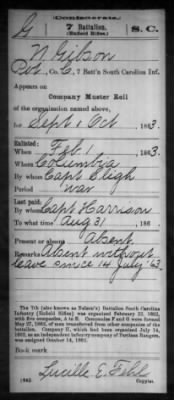 Confederate.
G 7 Battalion, S.C.
(Enfield Rifles.)
N Gibson
Pvt, Co. C, 7 Batt'n South Carolina Inf.
Appears on
Company Muster Roll
of the organization named above,
for Sept & Oct, 1863.
Enlisted:
When Feb 1, 1863.
Where Columbia
By whom Capt Sligh
Period War
Last paid:
By whom Capt Harrison
To what time Aug 31, 186
Present or absent Absent
Remarks: Absent without
leave since 14 July '63.
The 7th (also known as Nelson's) Battalion South Carolina
Infantry (Enfield Rifles) was organized February 22, 1862,
with five companies, A to E. Companies F and G were formed
May 27, 1862, of men transferred from other companies of the
battalion. Company H, which had been organized July 14,
1862, as an independent company of Partisan Rangers,
was assigned October 14, 1862.
Book mark:
Lucille E. Fehl
(642) Copyist.